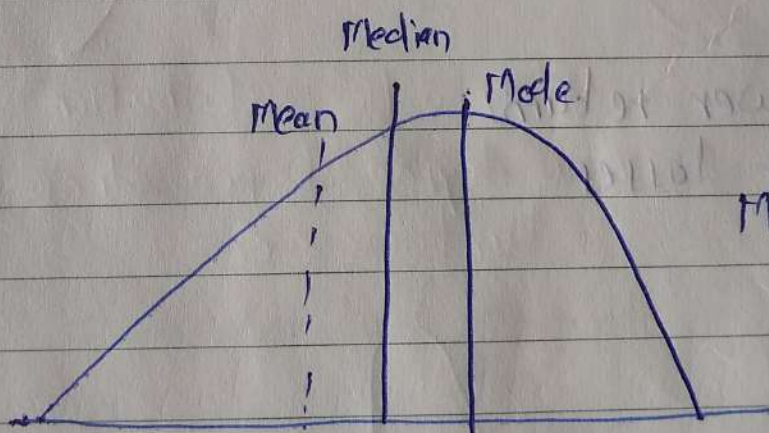 Median
Mean
Mode
M